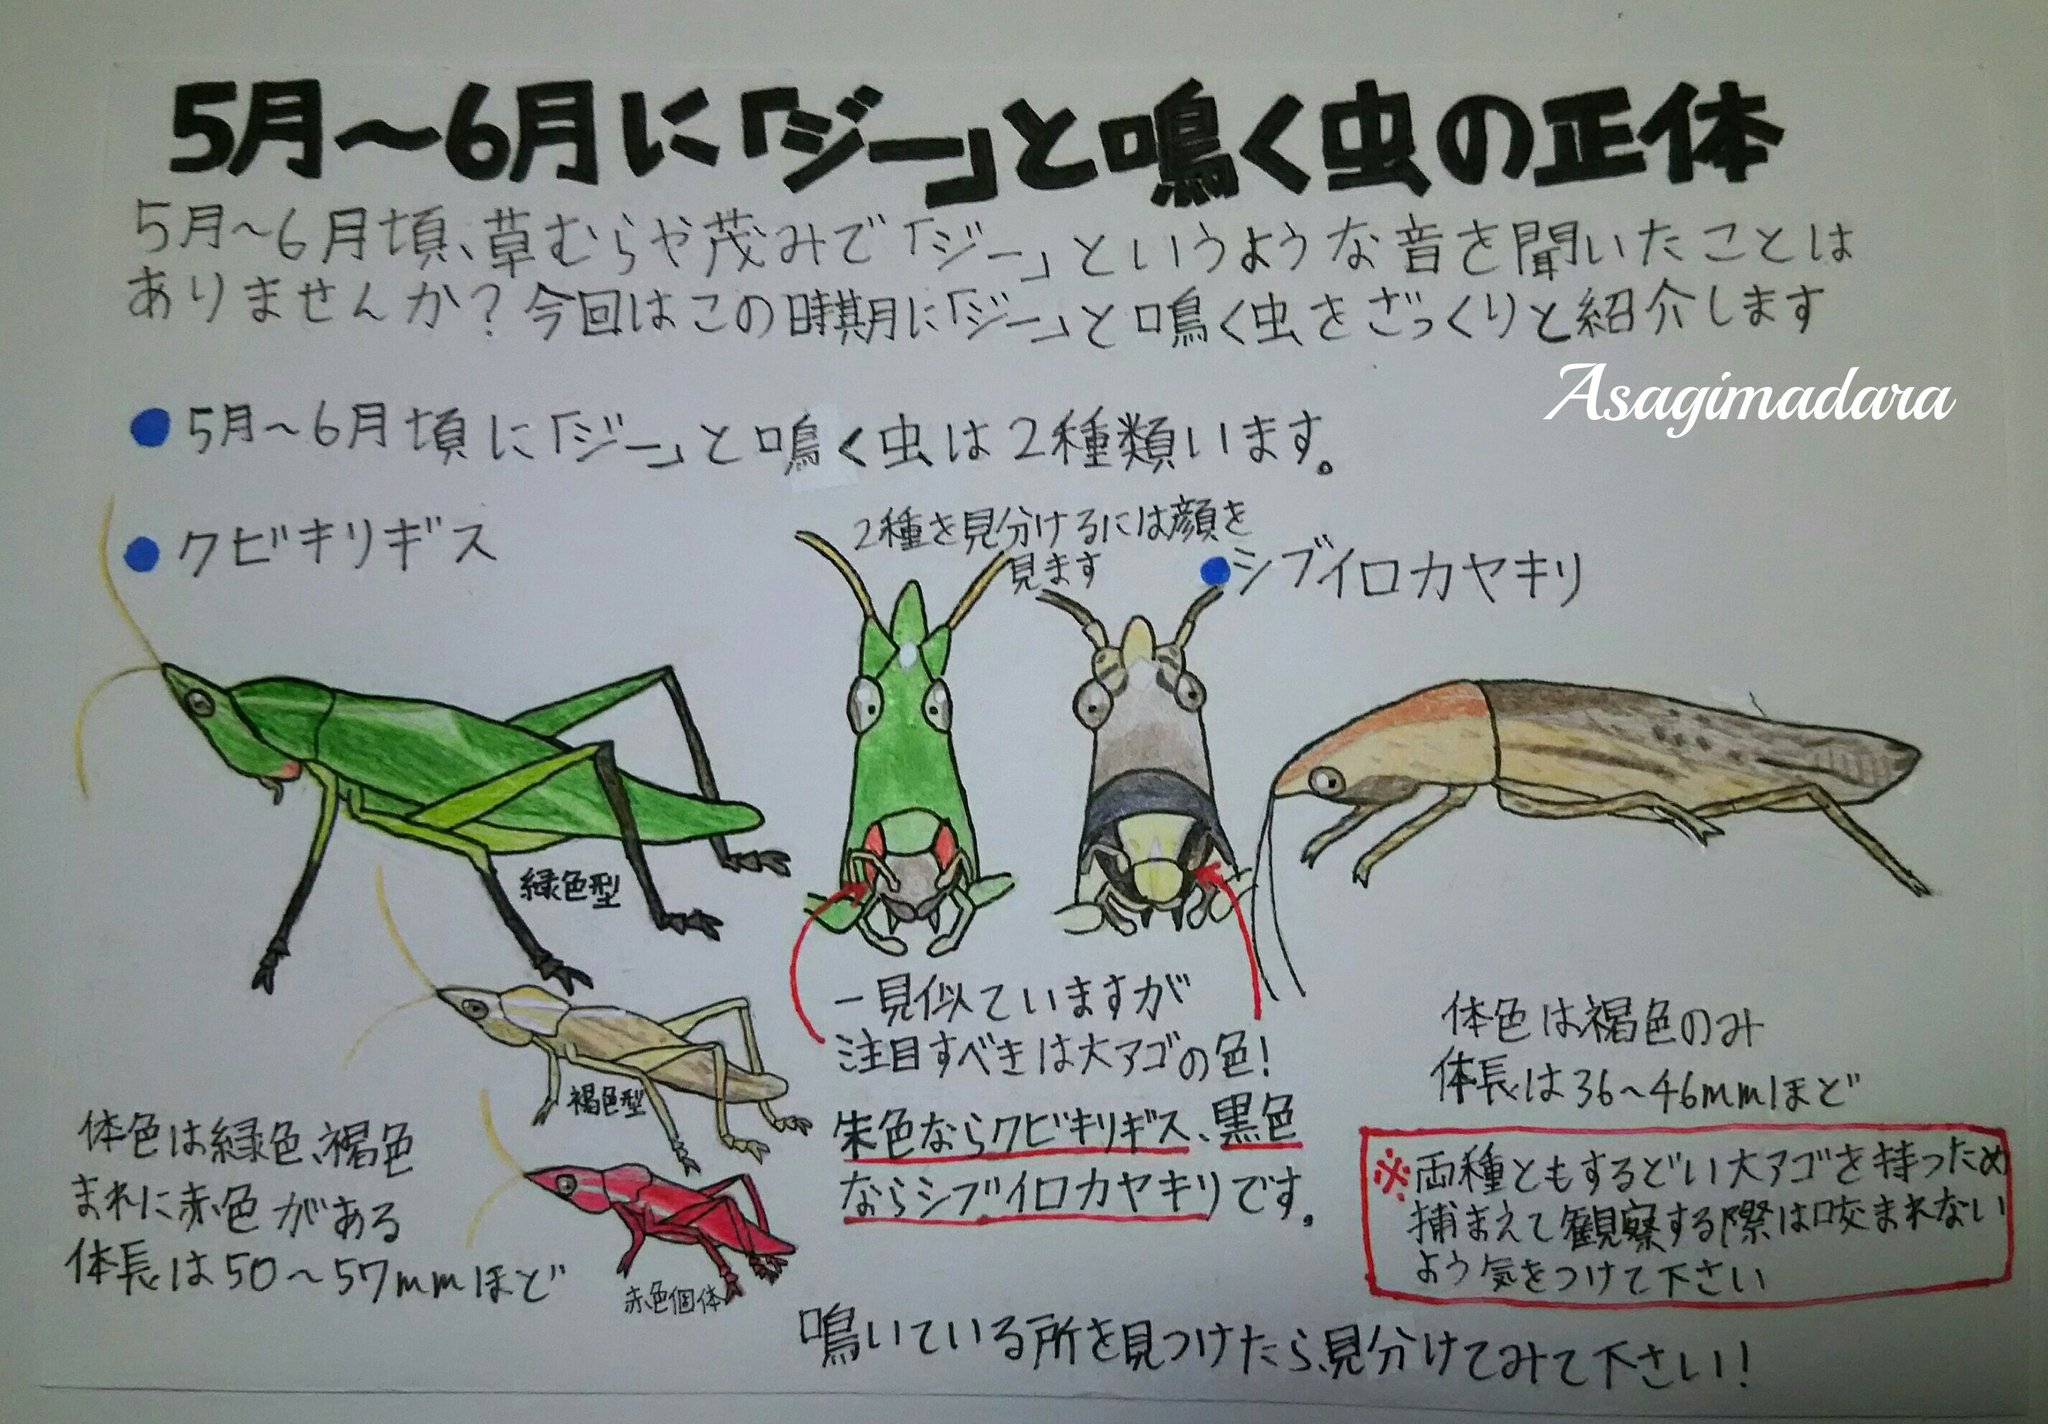 5月～6月に「ジー」と鳴く虫の正体
5月～6月頃、草むらや茂みで「ジー」というような音を聞いたことは
ありませんか？今回はこの時期に「ジー」と鳴く虫をざっくりと紹介します
Asagimadara
●5月～6月頃に「ジー」と鳴く虫は2種類います。
●クビキリギス
2種を見分けるには顔を
見ます
●シブイロカヤキリ
緑色型
褐色型
赤色個体
体色は緑色、褐色
まれに赤色がある
体長は50～57mmほど
一見似ていますが
注目すべきは大アゴの色！
朱色ならクビキリギス、黒色
ならシブイロカヤキリです。
体色は褐色のみ
体長は36～46mmほど
※両種ともするどい大アゴを持っため
捕まえて観察する際は咬まれない
よう気をつけて下さい
鳴いている所を見つけたら、見分けてみて下さい！